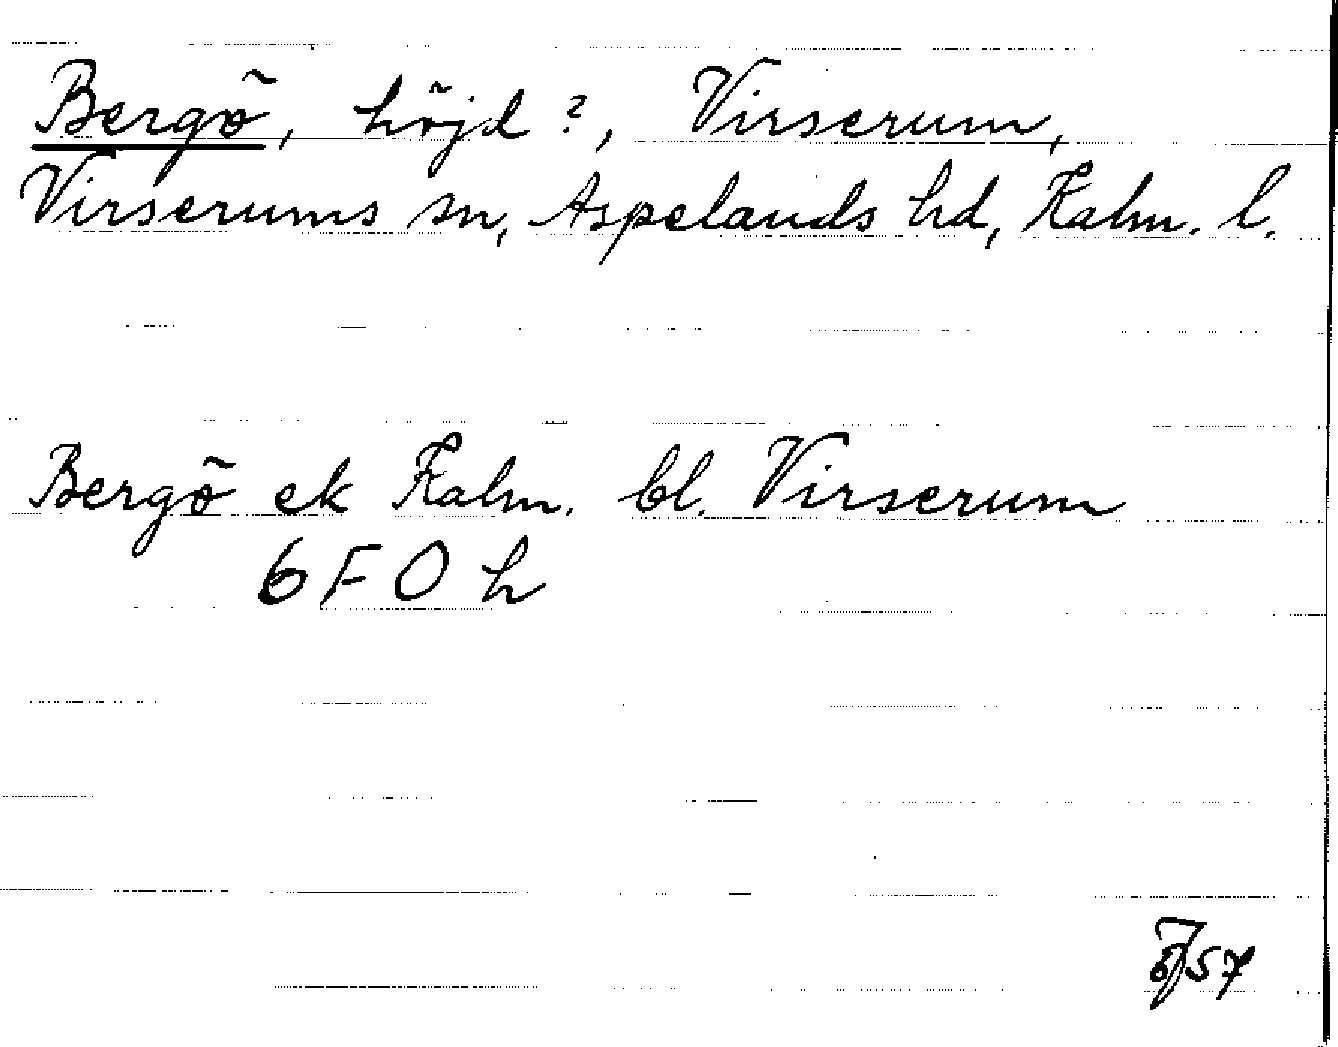 Bergö, höjd?, Virserum,
Virserums sn, Aspelands hd, Kalm. l.
Bergö ek Kalm. bl. Virserum
6 F O h